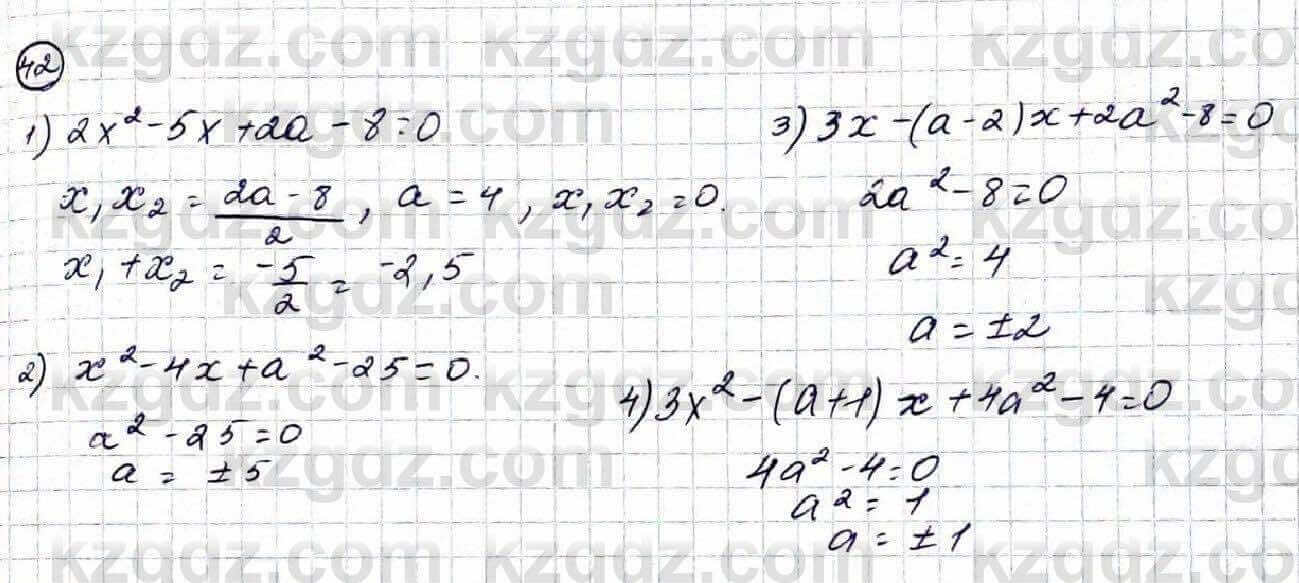 42
1) 2x² - 5x + 2a - 8 = 0
x₁x₂ = (2a - 8)/2, a = 4, x₁x₂ = 0.
x₁ + x₂ = -5/2 = -2,5
2) x² - 4x + a² - 25 = 0.
a² - 25 = 0
a = ±5
3) 3x - (a - 2)x + 2a² - 8 = 0
2a² - 8 = 0
a² = 4
a = ±2
4) 3x² - (a + 1)x + 4a² - 4 = 0
4a² - 4 = 0
a² = 1
a = ±1
kzgdz.com